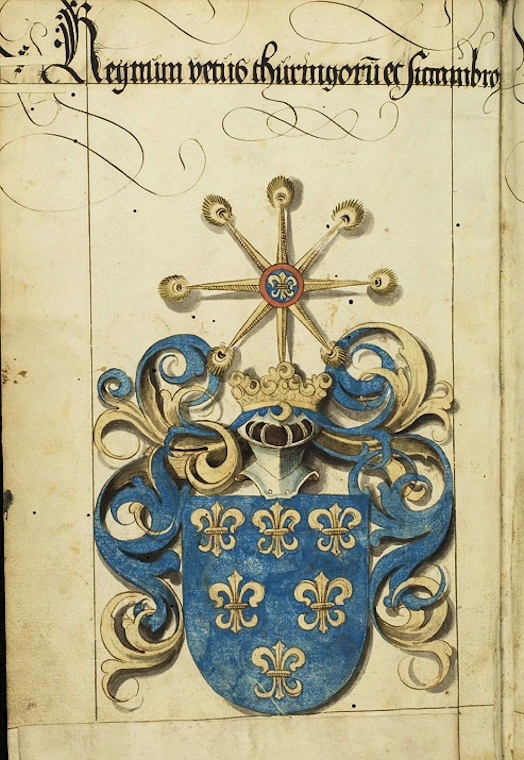 Regnum vetus thuringorū et sicambro